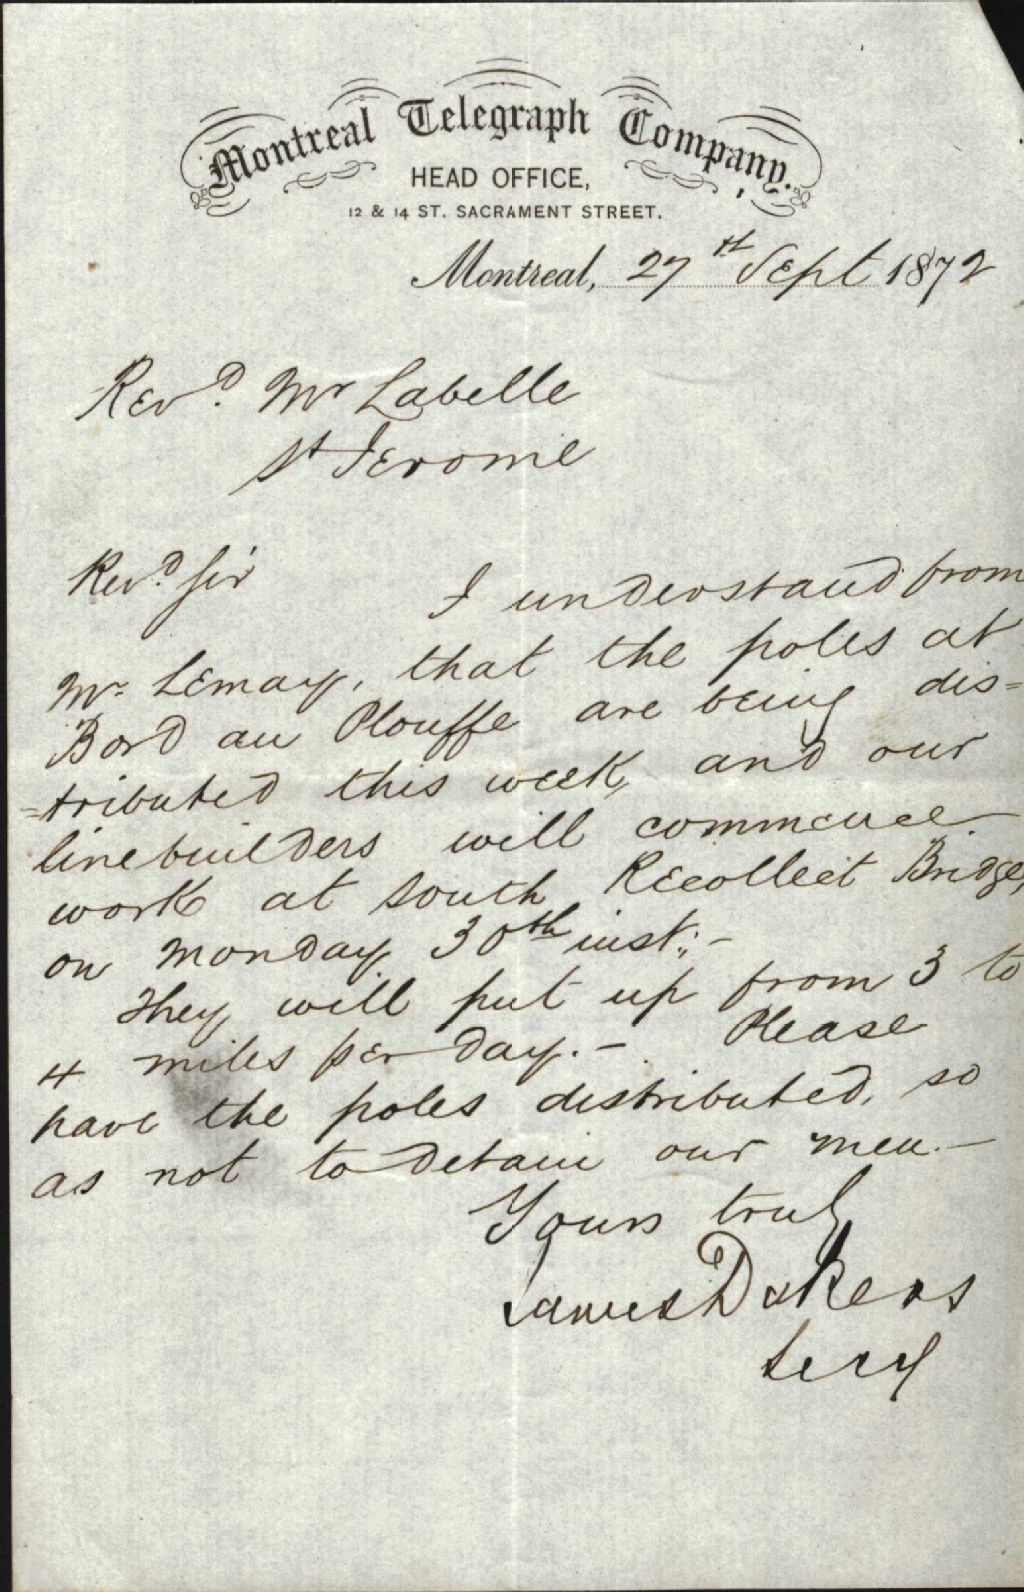 Montreal Telegraph Company.
HEAD OFFICE,
12 & 14 ST. SACRAMENT STREET.
Montreal, 27th Sept 1872
Revd. Mr Labelle
St Jerome
Revd. Sir
I understand from
Mr. Lemay, that the poles at
Bord au Plouffe are being dis=
=tributed this week, and our
linebuilders will commence
work at South Recollect Bridge,
on Monday 30th inst:-
They will put up from 3 to
4 miles per day.- Please
have the poles distributed, so
as not to detain our men.-
Yours truly
James Dakers
Secy